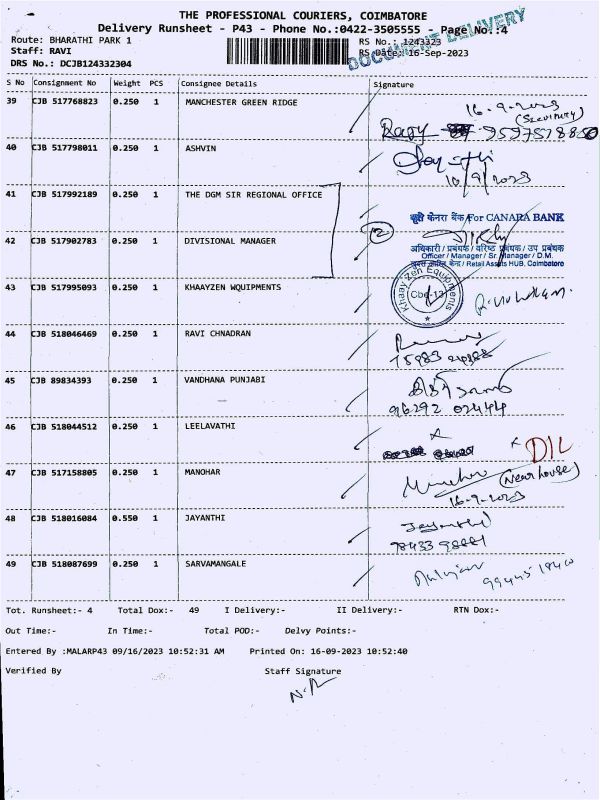 THE PROFESSIONAL COURIERS, COIMBATORE
Delivery Runsheet - P43 - Phone No.:0422-3505555 - Page No.:4
DOCUMENT DELIVERY
Route: BHARATHI PARK 1
RS No.: 1243323
Staff: RAVI
RS Date: 16-Sep-2023
DRS No.: DCJB124332304
S No Consignment No Weight PCS Consignee Details Signature
39 CJB 517768823 0.250 1 MANCHESTER GREEN RIDGE
16-9-2023
(Security)
9597578850
40 CJB 517798011 0.250 1 ASHVIN
10/9/2023
41 CJB 517992189 0.250 1 THE DGM SIR REGIONAL OFFICE
2
कृते केनरा बैंक For CANARA BANK
42 CJB 517902783 0.250 1 DIVISIONAL MANAGER
अधिकारी / प्रबंधक / वरिष्ठ प्रबंधक / उप प्रबंधक
Officer / Manager / Sr. Manager / D.M.
केन्द्र / Retail Assets HUB, Coimbatore
43 CJB 517995093 0.250 1 KHAAYZEN WQUIPMENTS
Khaay Zen Equipments
Cbe-12
44 CJB 518046469 0.250 1 RAVI CHNADRAN
45 CJB 89834393 0.250 1 VANDHANA PUNJABI
96292 02444
46 CJB 518044512 0.250 1 LEELAVATHI
x
x D/L
47 CJB 517158805 0.250 1 MANOHAR
(Near house)
16-9-2023
48 CJB 518016084 0.550 1 JAYANTHI
Jayanthi
98433 98881
49 CJB 518087699 0.250 1 SARVAMANGALE
Tot. Runsheet:- 4 Total Dox:- 49 I Delivery:- II Delivery:- RTN Dox:-
Out Time:- In Time:- Total POD:- Delvy Points:-
Entered By :MALARP43 09/16/2023 10:52:31 AM Printed On: 16-09-2023 10:52:40
Verified By Staff Signature